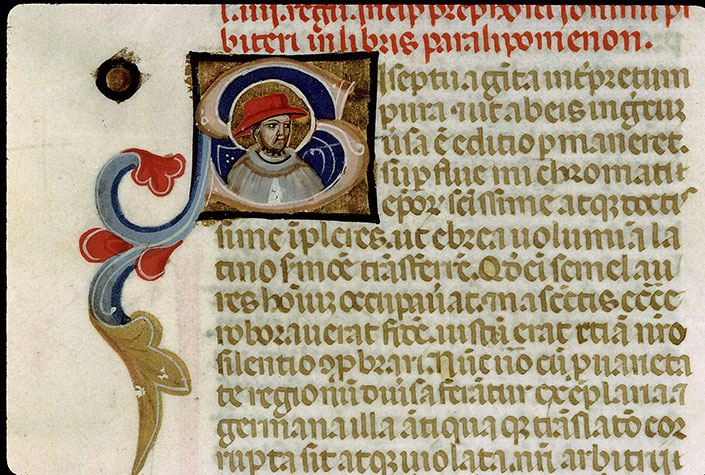 l. iiij. regū. Incip prephō sci Ioiīmi pr̄
biteri in libris paralipomenon.
S septuaginta inťpretum
pura ⁊ ut ab eis in grecū
uersa ē editio pmaneret.
supflue mi chromati
epōr scissime atq3 docti
sime īpleres. ut ebrea uolumīa la
tino smōē trāsferrē. Qd̄ eī semel au
res hoīuz occupauāt ⁊ nascētis eccē
roborauerat fidē. iustū erat etiā nr̄o
silentio cōp̄bari. Nūc uō cū p uarieta
te regionū diuīsa ferātur exēplaria. ⁊
germana illa ātiqua q3 trāslatō cor
rupta sit atq3 uiolata. nr̄i arbitrii